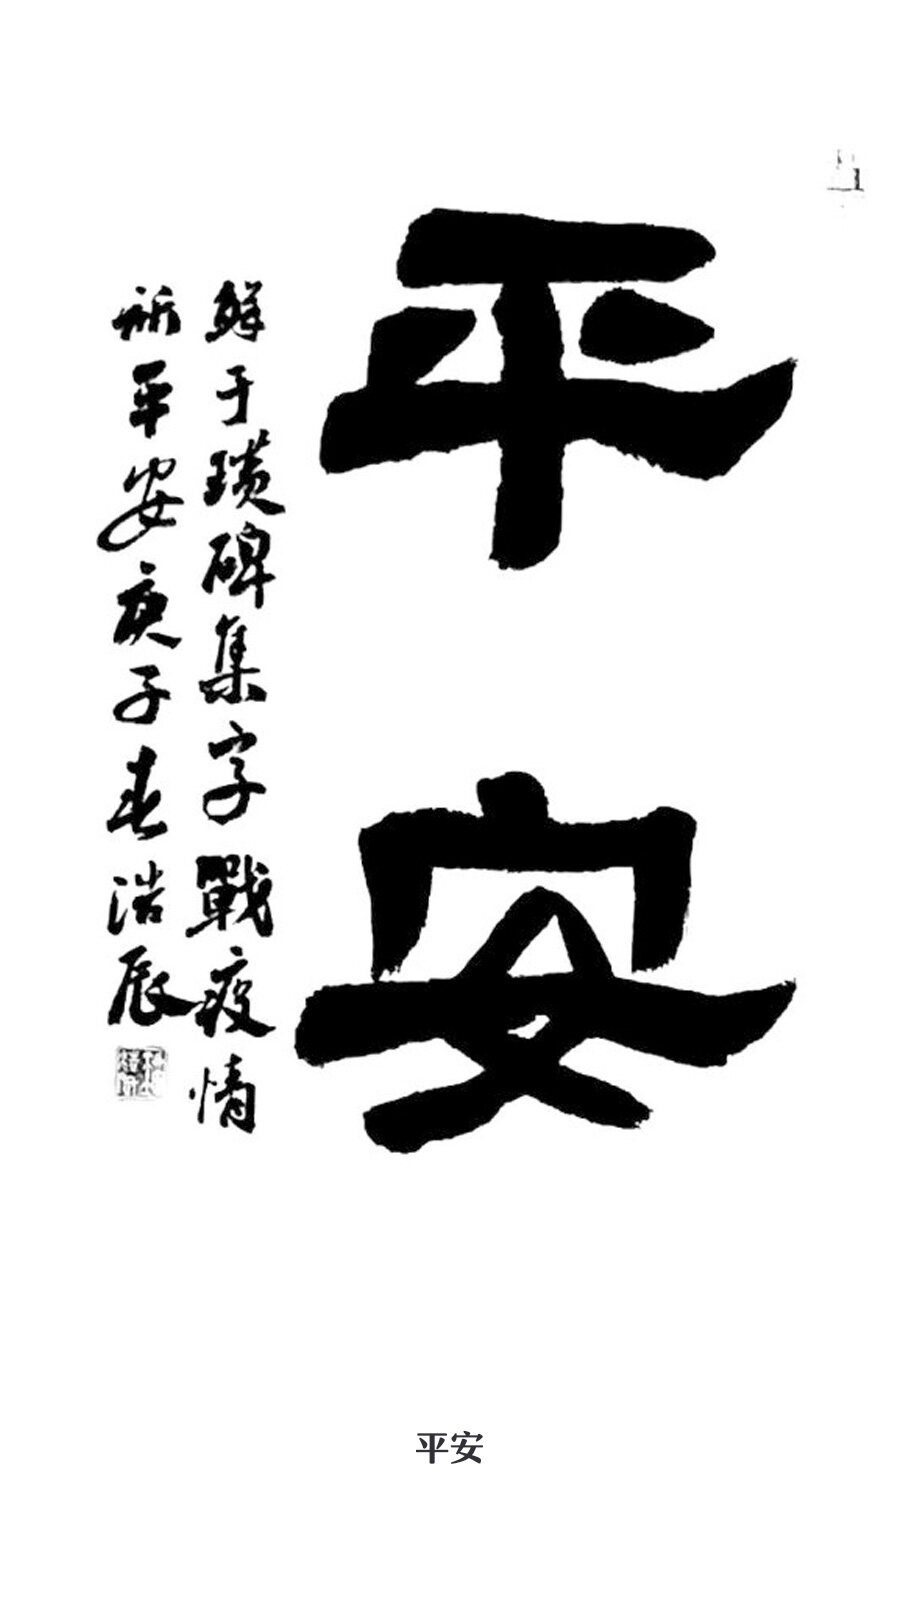 平安
鲜于璜碑集字戰疫情
祈平安庚子春浩辰
平安